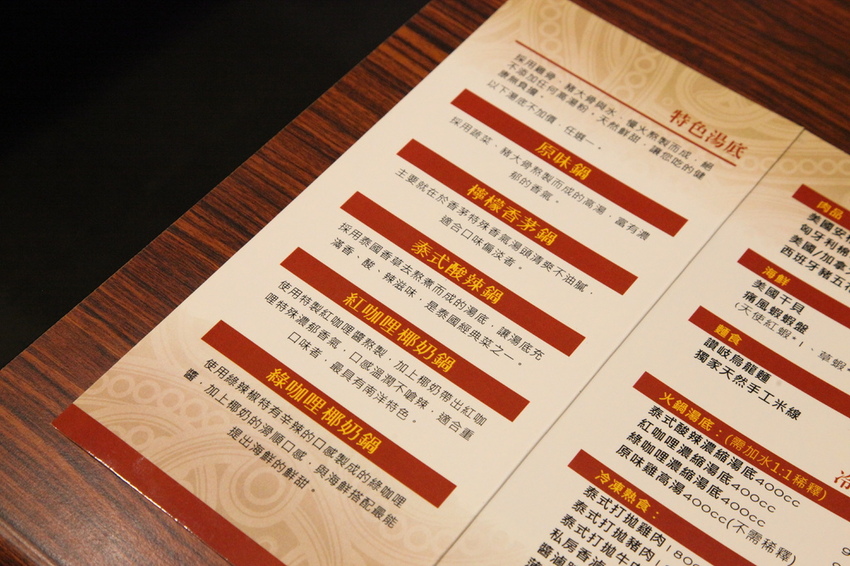 特色湯底
採用雞骨、豬大骨與水，慢火熬製而成，絕
不添加任何高湯粉，天然鮮甜，讓您吃的健
康無負擔。
以下湯底不加價，任選一。
原味鍋
採用蔬菜、豬大骨熬製而成的高湯，富有濃
郁的香氣。
檸檬香茅鍋
主要就在於香茅特殊香氣湯頭清爽不油膩，
適合口味偏淡者。
泰式酸辣鍋
採用泰國香草去熬煮而成的湯底，讓湯底充
滿香、酸、辣滋味，是泰國經典菜之一。
紅咖哩椰奶鍋
使用特製紅咖哩醬熬製，加上椰奶帶出紅咖
哩特殊濃郁香氣，口感溫潤不嗆辣，適合重
口味者，最具有南洋特色。
綠咖哩椰奶鍋
使用綠辣椒特有辛辣的口感製成的綠咖哩
醬，加上椰奶的滑順口感，與海鮮搭配最能
提出海鮮的鮮甜。
肉品
美國安格
匈牙利豬
美國/加拿
西班牙豬五花
海鮮
美國干貝
痛風蝦蝦盤
(天使紅蝦*1、草蝦
麵食
讚岐烏龍麵
獨家天然手工米線
火鍋湯底：(需加水1:1稀釋)
泰式酸辣濃縮湯底400cc
紅咖哩濃縮湯底400cc
綠咖哩濃縮湯底400cc
原味雞高湯400cc(不需稀釋)
冷凍熟食：
泰式打拋雞肉180g
泰式打拋豬肉180
泰式打拋牛肉
私房香滷
醬滷
冷